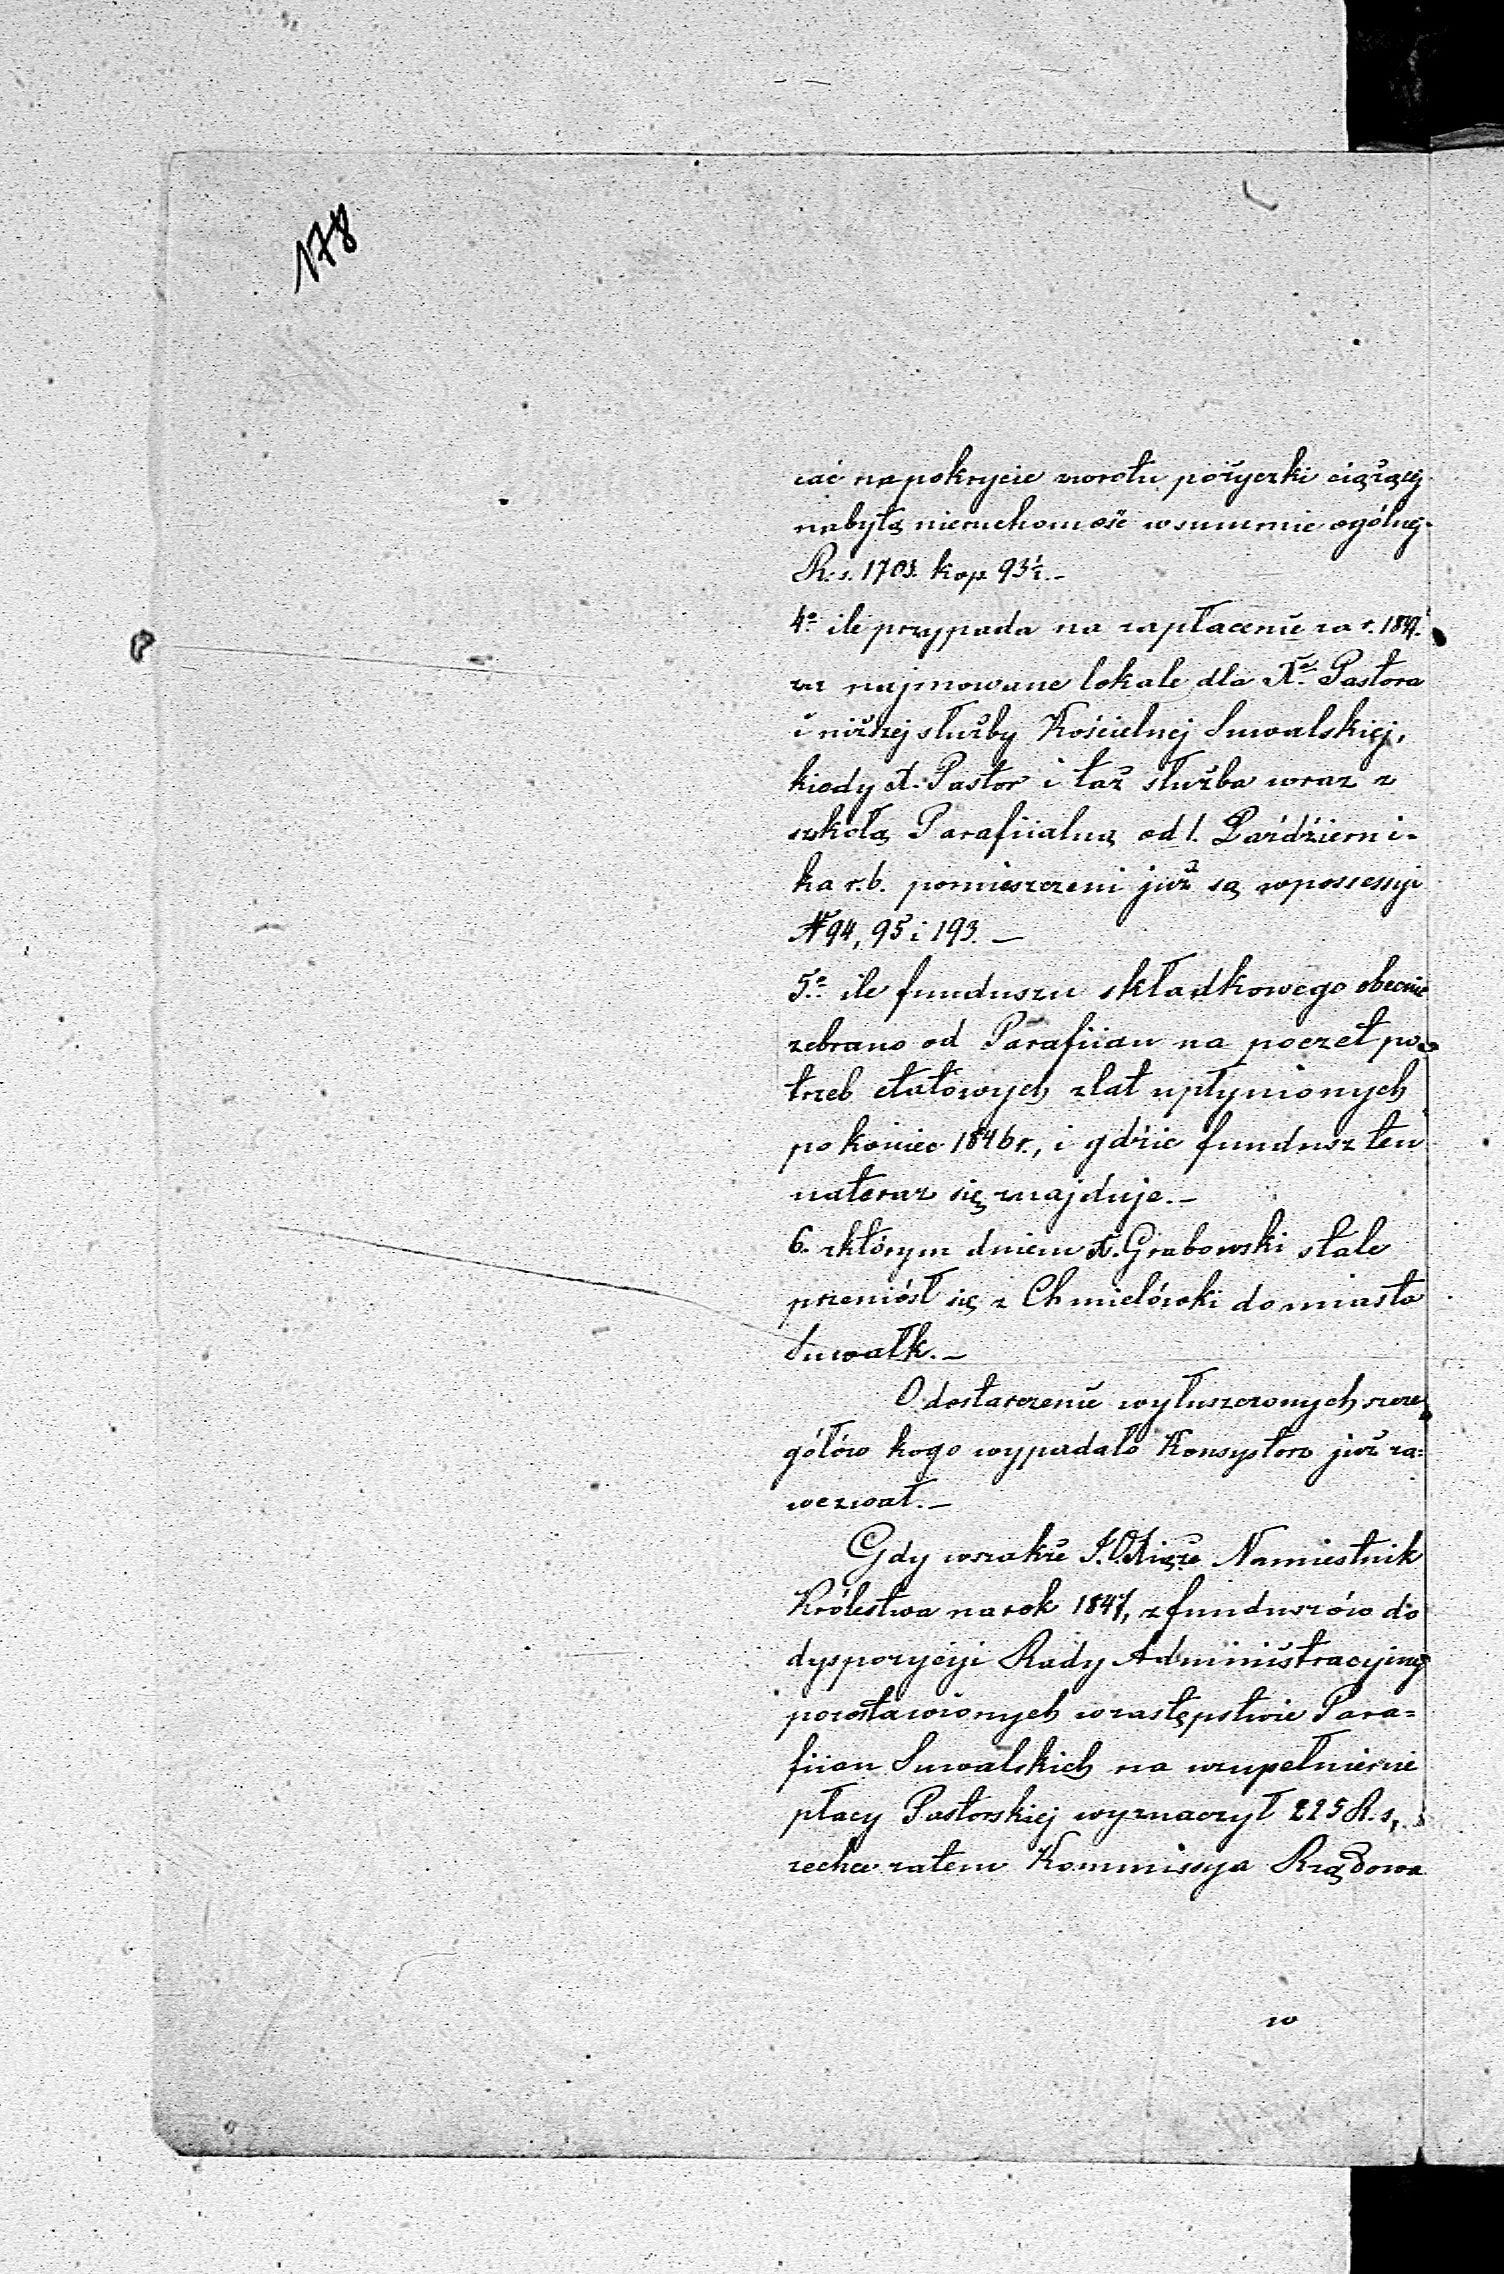 178
cać na pokrycie zwrotu pożyczki ciążącej
nabytą nieruchomość w summie ogólnej
R. s. 1703. kop 93½.–
4º ile przypada na zapłacenie za r. 1847.
za najmowane lokale dla Xa Pastora
i niższej służby Kościelnej Suwalskiej,
kiedy X. Pastor i taż służba wraz z
szkołą Parafiialną od 1. Październi-
ka r. b. pomieszczeni już są w possessyi
N 94, 95 i 193. –
5º ile funduszu składkowego obecnie
zebrano od Parafiian na poczet po-
trzeb etatowych z lat upłynionych
po koniec 1846 r., i gdzie fundusz ten
na teraz się znajduje. –
6. z którym dniem X. Grabowski stale
przeniósł się z Chmielówki do miasta
Suwałk. –
O dostarczenie wyłuszczonych szcze
gółów kogo wypadało Konsystorz już za=
wezwał. –
Gdy wszakże J. O. Xiąże Namiestnik
Królestwa na rok 1847, z funduszów do
dyspozycyi Rady Administracyjnej
pozostawionych w zastępstwie Para=
fiian Suwalskich na uzupełnienie
płacy Pastorskiej wyznaczył 225 R. s,
zechce zatem Kommissya Rządowa
w